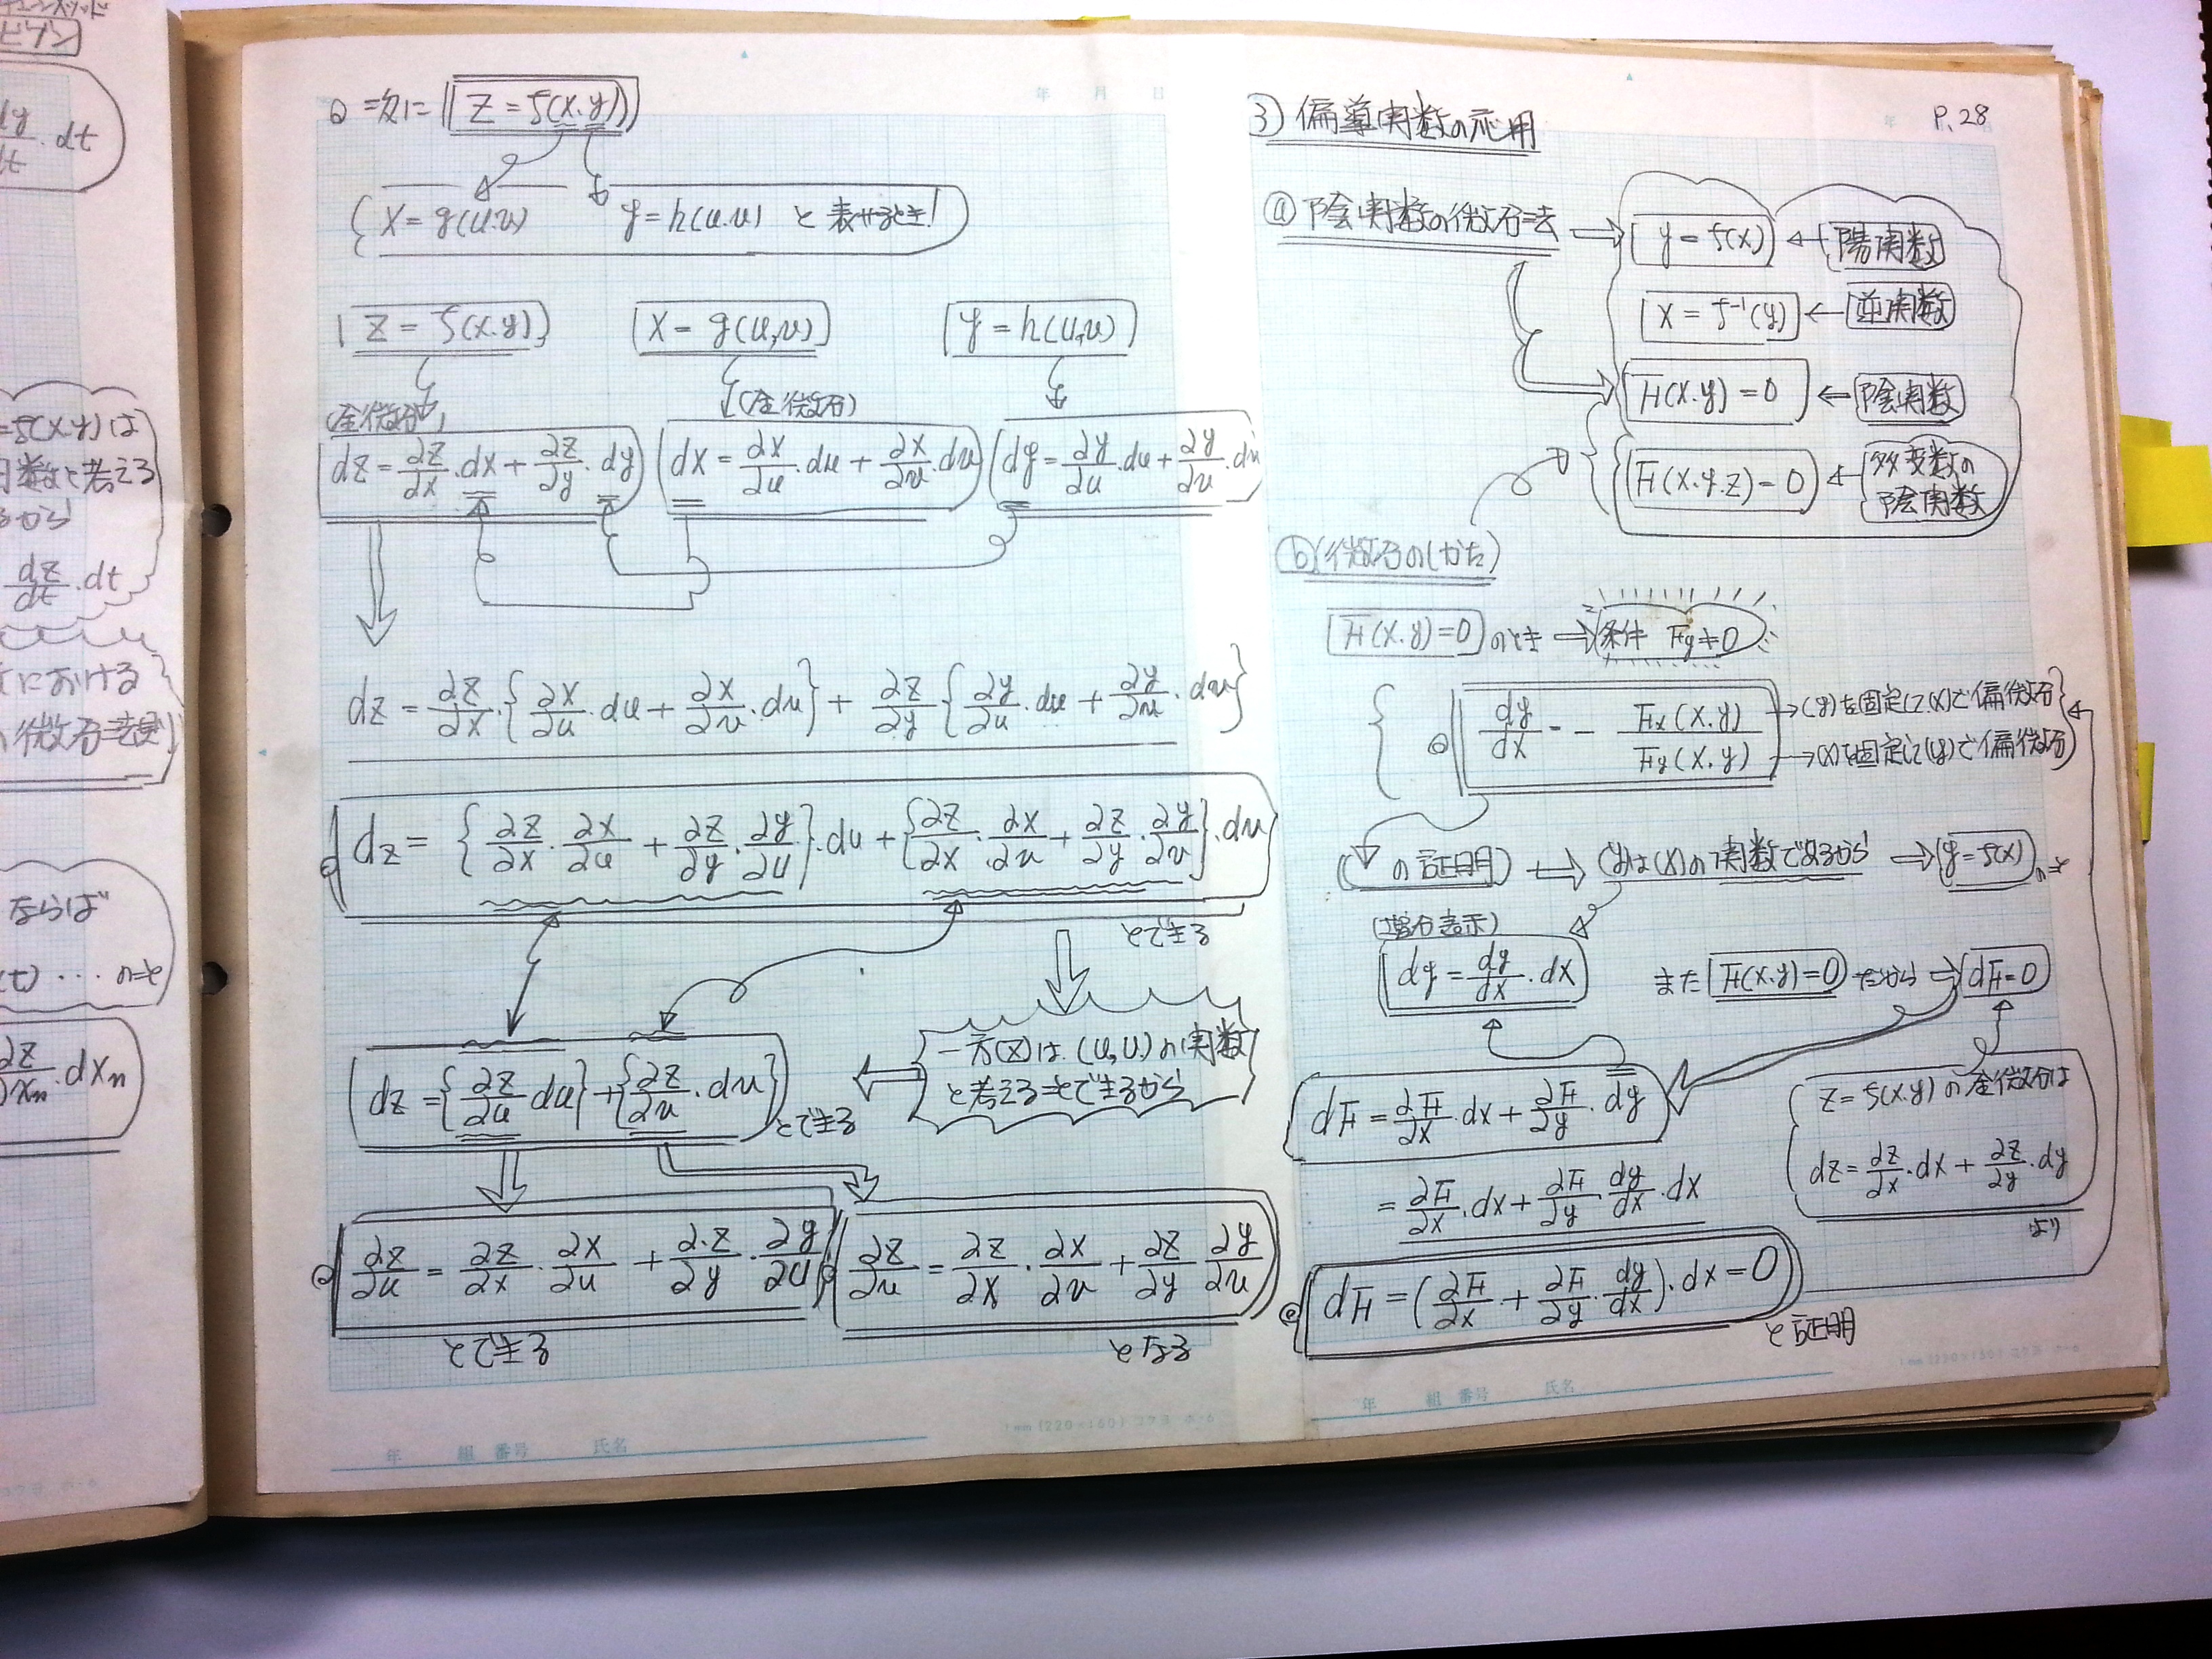 ピブン
dy/dt・dt
=f(x.y)は
関数と考える
るから
dz/dt・dt
における
微分
ならば
(t) … のとき
∂z/∂xn・dxn
年 月 日
◎次に z = f(x.y)
x = g(u.v) y = h(u.v) と表せるとき!
z = f(x.y) x = g(u,v) y = h(u,v)
(全微分) (全微分)
dz = ∂z/∂x・dx + ∂z/∂y・dy dx = ∂x/∂u・du + ∂x/∂v・dv dy = ∂y/∂u・du + ∂y/∂v・dv
dz = ∂z/∂x・{∂x/∂u・du + ∂x/∂v・dv} + ∂z/∂y{∂y/∂u・du + ∂y/∂v・dv}
◎ dz = {∂z/∂x・∂x/∂u + ∂z/∂y・∂y/∂u}・du + {∂z/∂x・∂x/∂v + ∂z/∂y・∂y/∂v}・dv
とできる
一方(z)は(u,v)の関数
と考えることできるから
dz = {∂z/∂u du} + {∂z/∂v・dv} とできる
◎ ∂z/∂u = ∂z/∂x・∂x/∂u + ∂z/∂y・∂y/∂u
とできる
◎ ∂z/∂v = ∂z/∂x・∂x/∂v + ∂z/∂y ∂y/∂v
となる
年 組 番号 氏名
年 P.28
3) 偏導関数の応用
ⓐ 陰関数の微分法 ⇒ y = f(x) ← 陽関数
x = f⁻¹(y) ← 逆関数
F(x.y) = 0 ← 陰関数
F(x.y.z) = 0 ← 多変数の
陰関数
ⓑ (微分のしかた)
F(x.y)=0 のとき ⇒ 条件 Fy≠0
◎ dy/dx = - Fx(x.y)/Fy(x.y)
→(y)を固定して(x)で偏微分
→(x)を固定して(y)で偏微分
( の証明) ⇒ (y)は(x)の関数であるから ⇒ y = f(x) のとき
(増分表示)
dy = dy/dx・dx また F(x.y)=0 だから ⇒ dF=0
dF = ∂F/∂x・dx + ∂F/∂y・dy
z = f(x.y) の全微分は
dz = ∂z/∂x・dx + ∂z/∂y・dy
より
= ∂F/∂x・dx + ∂F/∂y dy/dx・dx
◎ dF = (∂F/∂x + ∂F/∂y・dy/dx)・dx = 0
と証明
年 組 番号 氏名